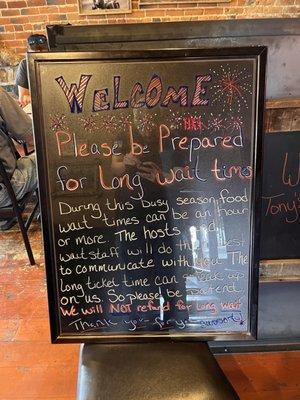 WELCOME
Please be Prepared
for Long wait time
During this busy season, food
wait times can be an hour
or more. The hosts and
waitstaff will do their best
to communicate with you. The
long ticket time can sneak up
on us. So please be patient.
We will NOT refund for long wait
Thank you for your support
W
Tony's